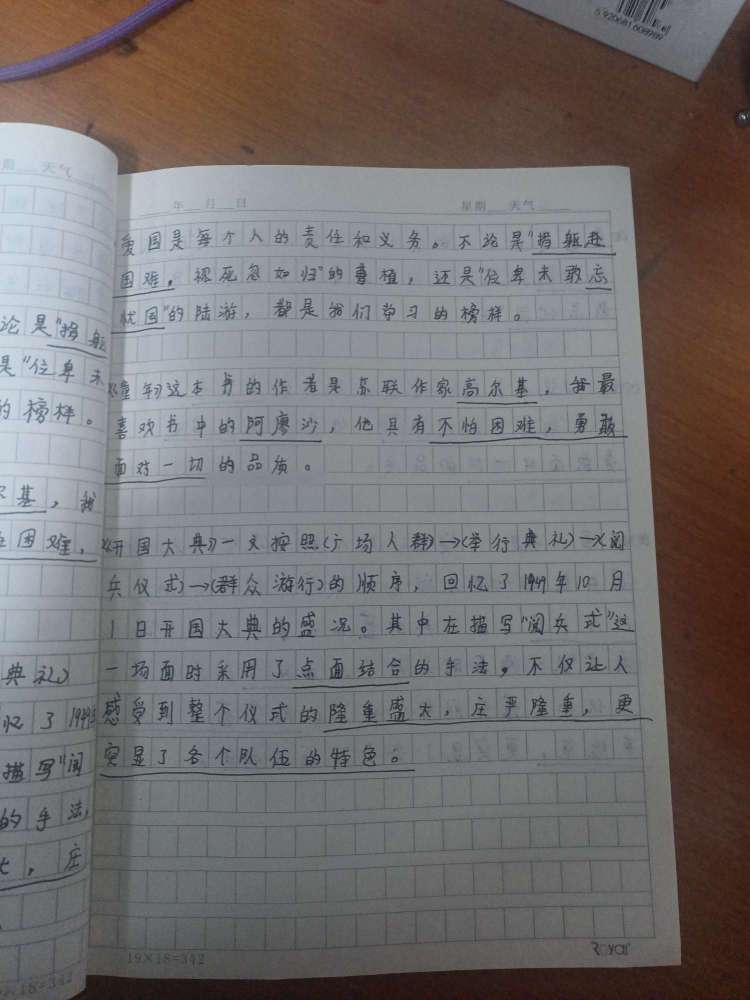 5920681608989
期 天气
年 月 日 星期 天气
爱国是每个人的责任和义务。不论是"捐躯赴
国难,视死忽如归"的曹植,还是"位卑未敢忘
忧国"的陆游,都是我们学习的榜样。
《童年》这本书的作者是苏联作家高尔基,我最
喜欢书中的阿廖沙,他具有不怕困难,勇敢
面对一切的品质。
《开国大典》一文按照(广场人群)→(举行典礼)→(阅
兵仪式)→(群众游行)的顺序,回忆了1949年10月
1日开国大典的盛况。其中在描写"阅兵式"这
一场面时采用了点面结合的手法,不仅让人
感受到整个仪式的隆重盛大,庄严隆重,更
突显了各个队伍的特色。
19×18=342
Royal
论是"捐躯
是"位卑未
的榜样。
尔基,我
困难,
典礼)
忆了1949年
描写"阅
的手法,
大,庄
×18=342